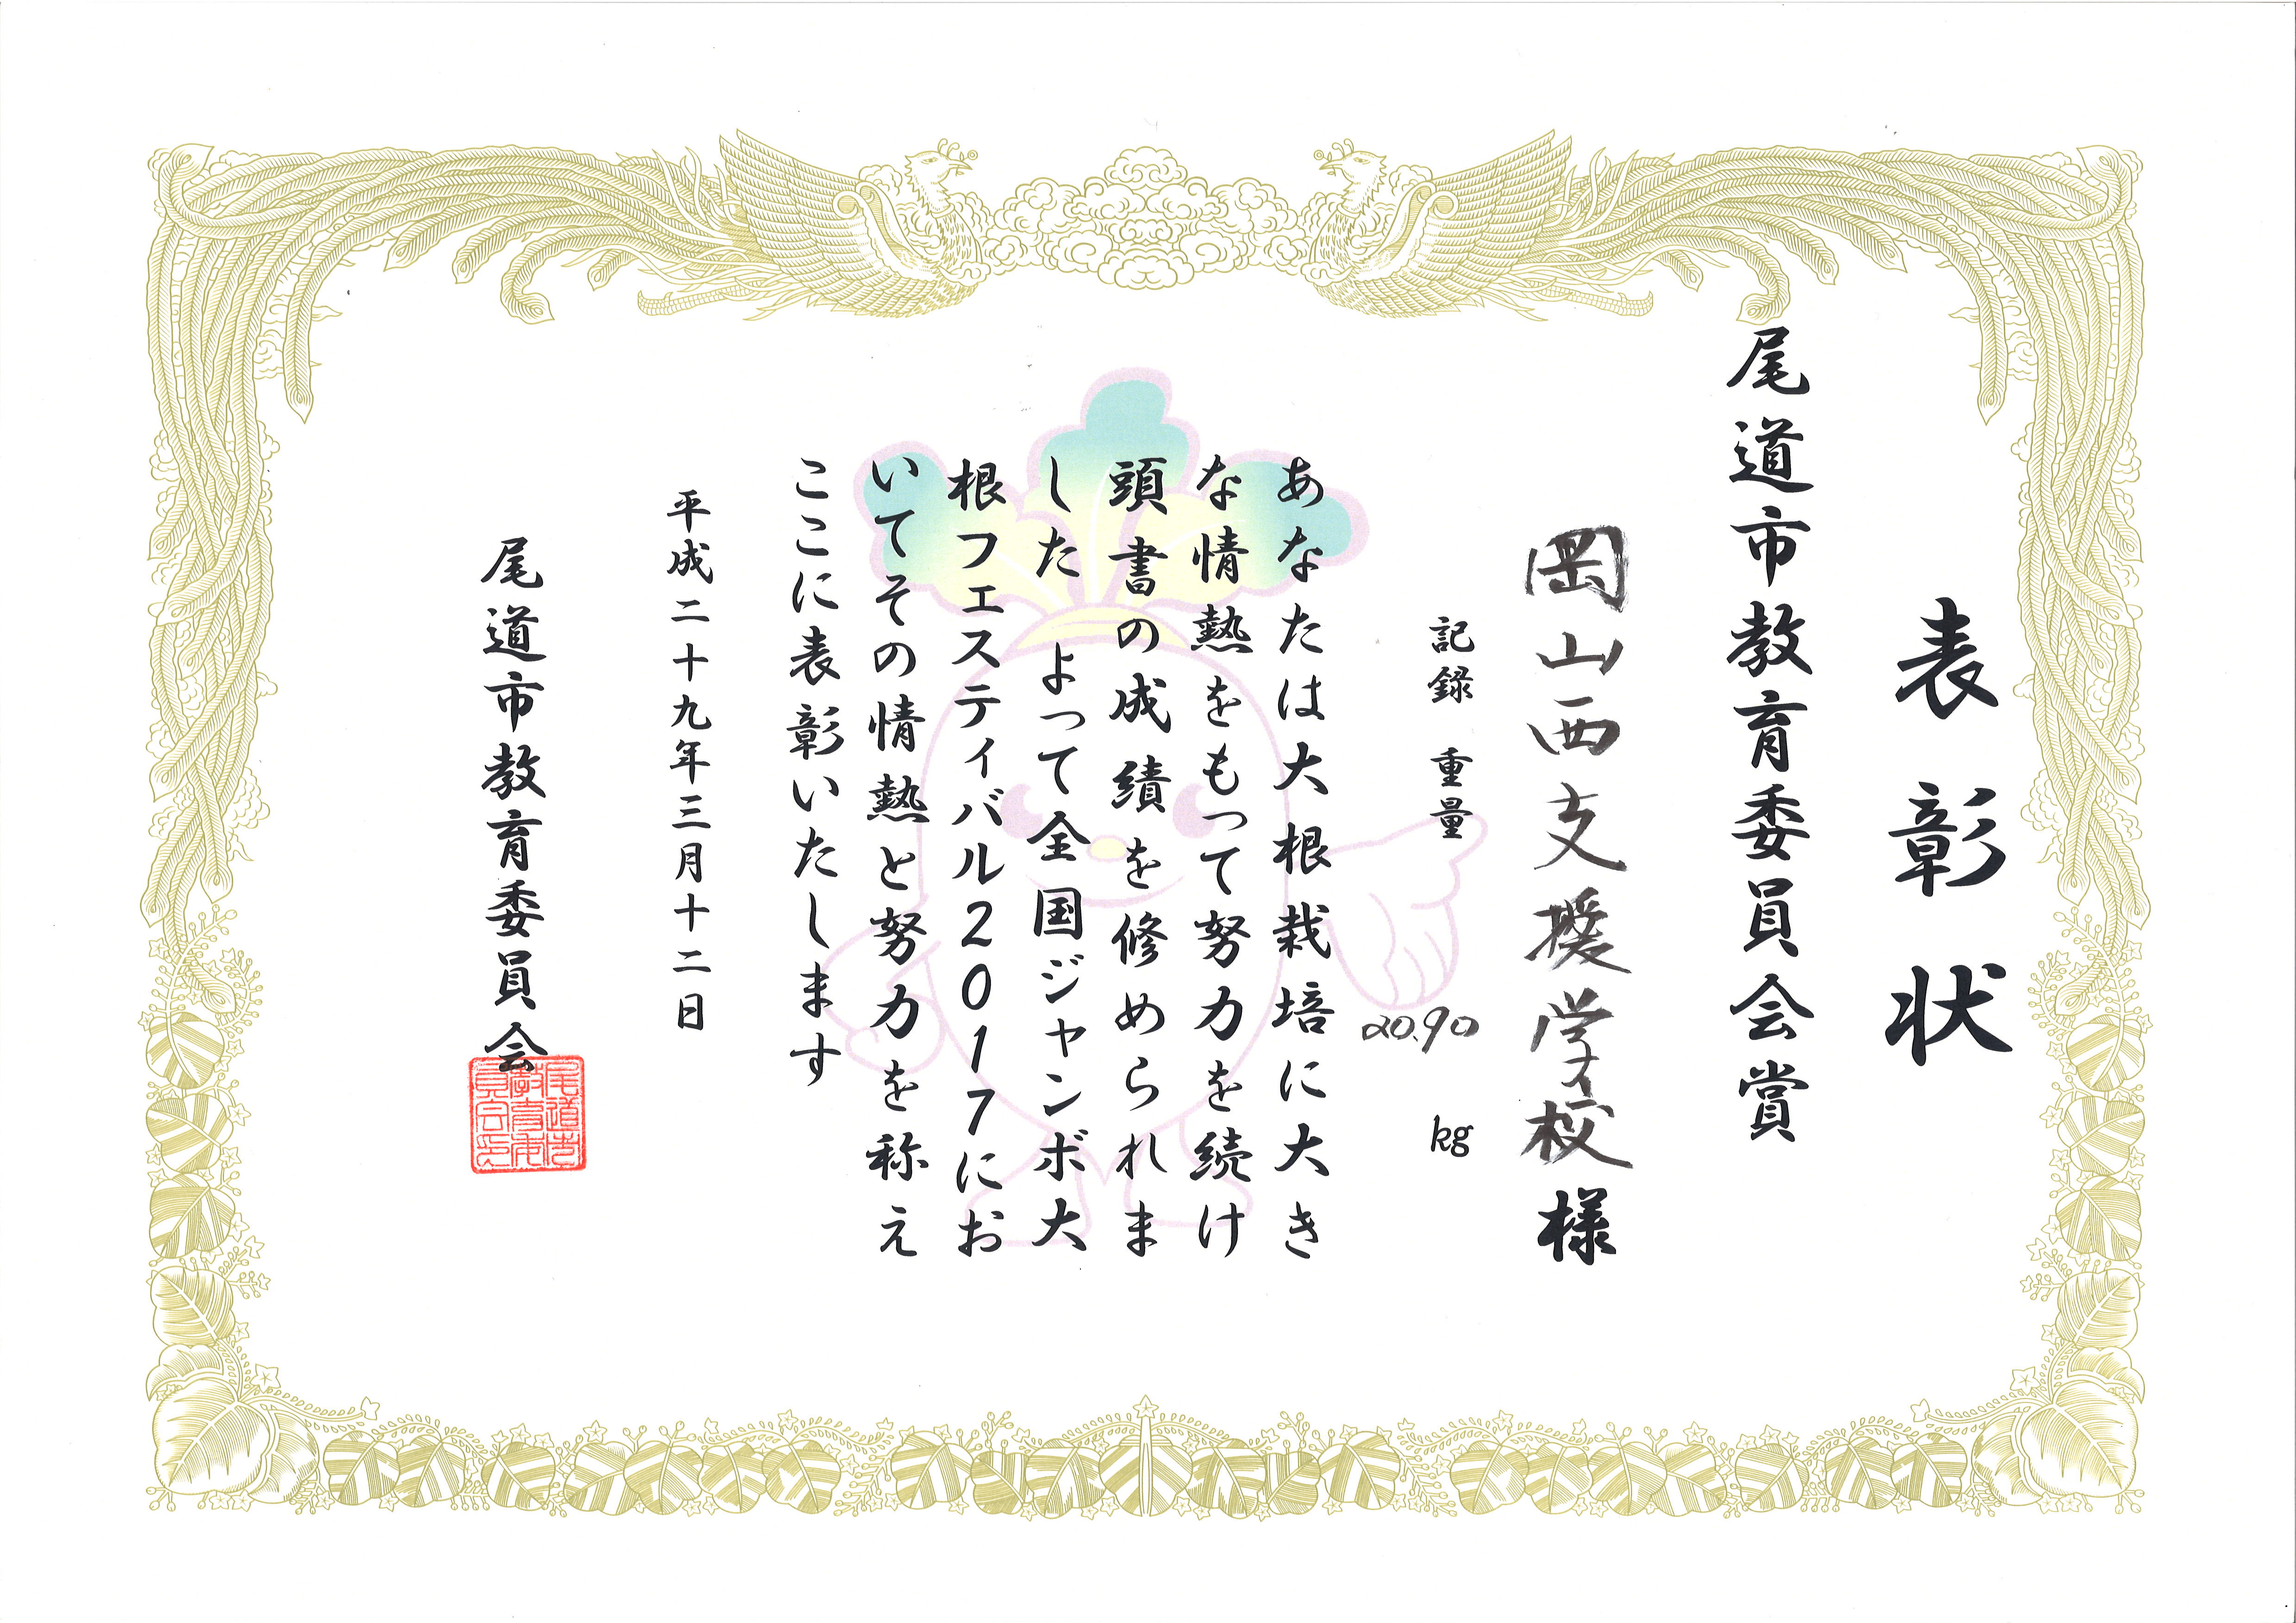 表彰状
尾道市教育委員会賞
岡山西支援学校様
記録 重量 20.90 kg
あなたは大根栽培に大き
な情熱をもって努力を続け
頭書の成績を修められま
した よって全国ジャンボ大
根フェスティバル2017にお
いてその情熱と努力を称え
ここに表彰いたします
平成二十九年三月十二日
尾道市教育委員会
尾道市
教育委
員会印